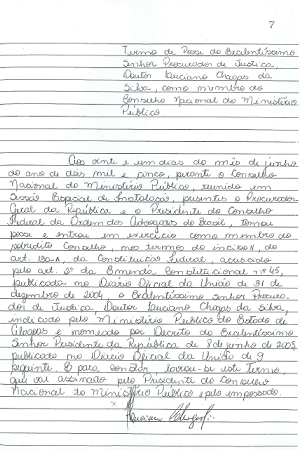 7
Termo de Posse do Excelentíssimo
Senhor Procurador de Justiça,
Doutor Luciano Chagas da
Silva, como membro do
Conselho Nacional do Ministério
Público
Aos vinte e um dias do mês de junho
do ano de dois mil e cinco, perante o Conselho
Nacional do Ministério Público, reunido em
Sessão Especial de Instalação, presentes o Procurador-
Geral da República e o Presidente do Conselho
Federal da Ordem dos Advogados do Brasil, tomou
posse e entrou em exercício como membro do
referido Conselho, nos termos do inciso II, do
art. 130-A, da Constituição Federal, acrescido
pelo art. 2º da Emenda Constitucional nº 45,
publicada no Diário Oficial da União de 31 de
dezembro de 2004, o Excelentíssimo Senhor Procura-
dor de Justiça Doutor Luciano Chagas da Silva,
indicado pelo Ministério Público do Estado de
Alagoas e nomeado por Decreto do Excelentíssimo
Senhor Presidente da República de 8 de junho de 2005,
publicado no Diário Oficial da União de 9
seguinte. E para constar lavrou-se este termo
que vai assinado pelo Presidente do Conselho
Nacional do Ministério Público e pelo empossado.